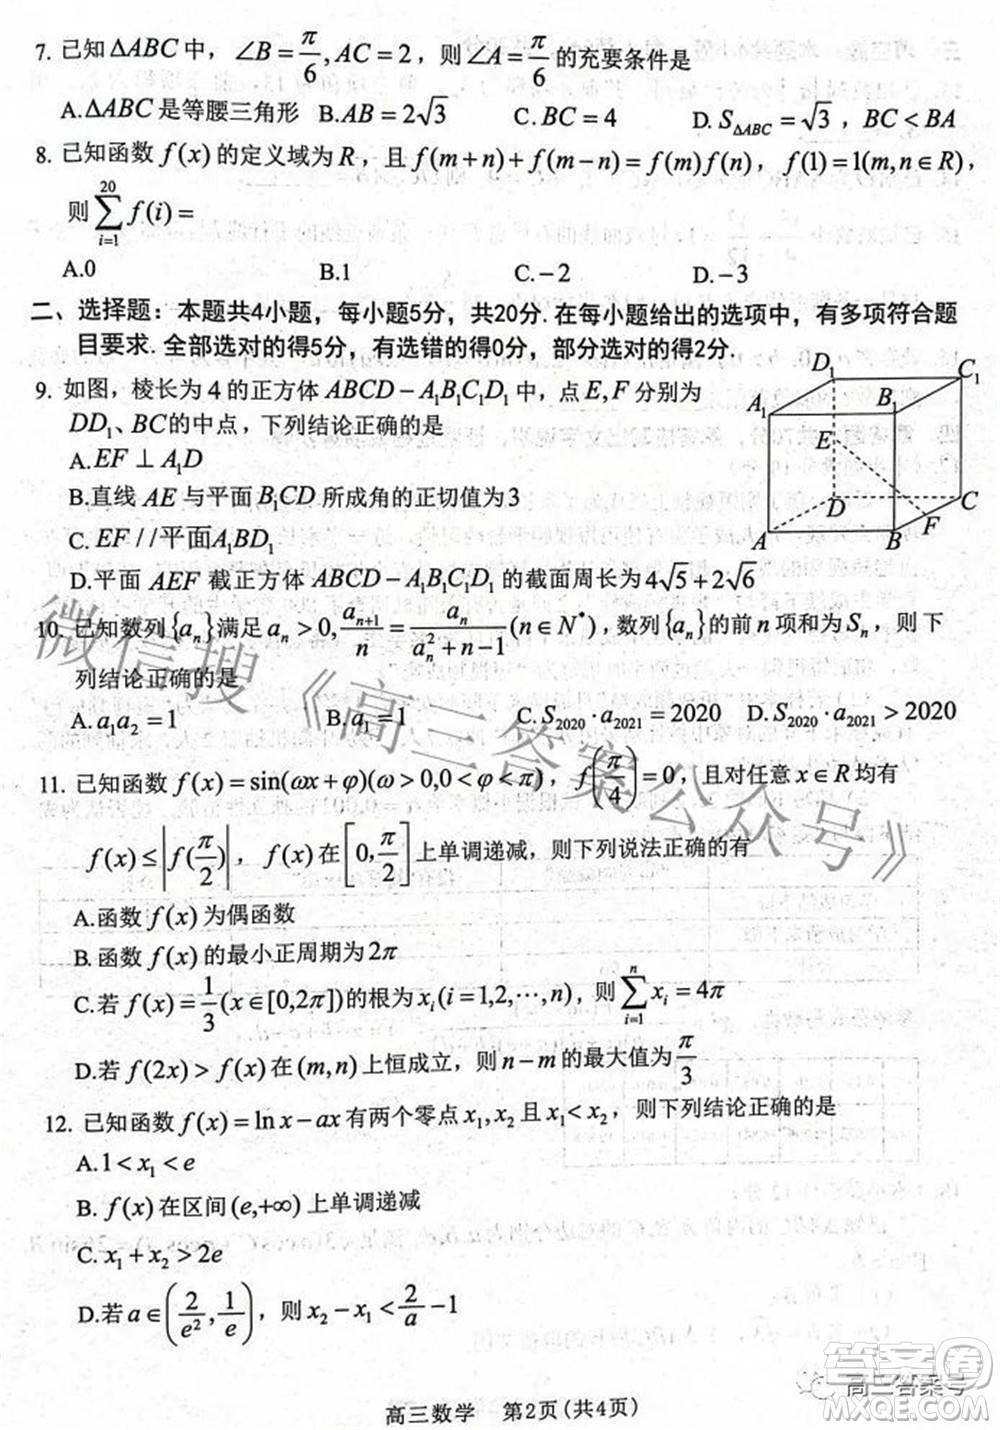 7. 已知 ΔABC 中, ∠B = π/6, AC = 2, 则 ∠A = π/6 的充要条件是
A. ΔABC 是等腰三角形 B. AB = 2√3 C. BC = 4 D. S_ΔABC = √3, BC < BA
8. 已知函数 f(x) 的定义域为 R, 且 f(m+n) + f(m−n) = f(m)f(n), f(1) = 1(m,n∈R),
则 ∑_{i=1}^{20} f(i) =
A.0 B.1 C.−2 D.−3
二、选择题: 本题共4小题, 每小题5分, 共20分. 在每小题给出的选项中, 有多项符合题
目要求. 全部选对的得5分, 有选错的得0分, 部分选对的得2分.
9. 如图, 棱长为 4 的正方体 ABCD−A₁B₁C₁D₁ 中, 点 E,F 分别为
DD₁、BC 的中点, 下列结论正确的是
A. EF ⊥ A₁D
B.直线 AE 与平面 B₁CD 所成角的正切值为 3
C. EF // 平面A₁BD₁
D.平面 AEF 截正方体 ABCD−A₁B₁C₁D₁ 的截面周长为 4√5 + 2√6
D₁ C₁
A₁ B₁
E
D C
F
A B
10. 已知数列{aₙ}满足 aₙ > 0, aₙ₊₁/n = aₙ/(aₙ² + n − 1) (n∈N*), 数列{aₙ}的前 n 项和为 Sₙ, 则下
列结论正确的是
A. a₁a₂ = 1 B. a₁ = 1 C. S₂₀₂₀ · a₂₀₂₁ = 2020 D. S₂₀₂₀ · a₂₀₂₁ > 2020
11. 已知函数 f(x) = sin(ωx + φ)(ω > 0, 0 < φ < π), f(π/4) = 0, 且对任意 x∈R 均有
f(x) ≤ |f(π/2)|, f(x) 在 [0, π/2] 上单调递减, 则下列说法正确的有
A.函数 f(x) 为偶函数
B. 函数 f(x) 的最小正周期为 2π
C.若 f(x) = 1/3 (x∈[0,2π]) 的根为 xᵢ(i = 1,2,⋯,n), 则 ∑_{i=1}^{n} xᵢ = 4π
D.若 f(2x) > f(x) 在 (m,n) 上恒成立, 则 n−m 的最大值为 π/3
12. 已知函数 f(x) = ln x − ax 有两个零点 x₁,x₂ 且 x₁ < x₂, 则下列结论正确的是
A. 1 < x₁ < e
B. f(x) 在区间 (e,+∞) 上单调递减
C. x₁ + x₂ > 2e
D.若 a∈(2/e², 1/e), 则 x₂ − x₁ < 2/a − 1
微信搜《高三答案公众号》
高三答案号
答案圈
MXQE.COM
高三数学 第2页(共4页)